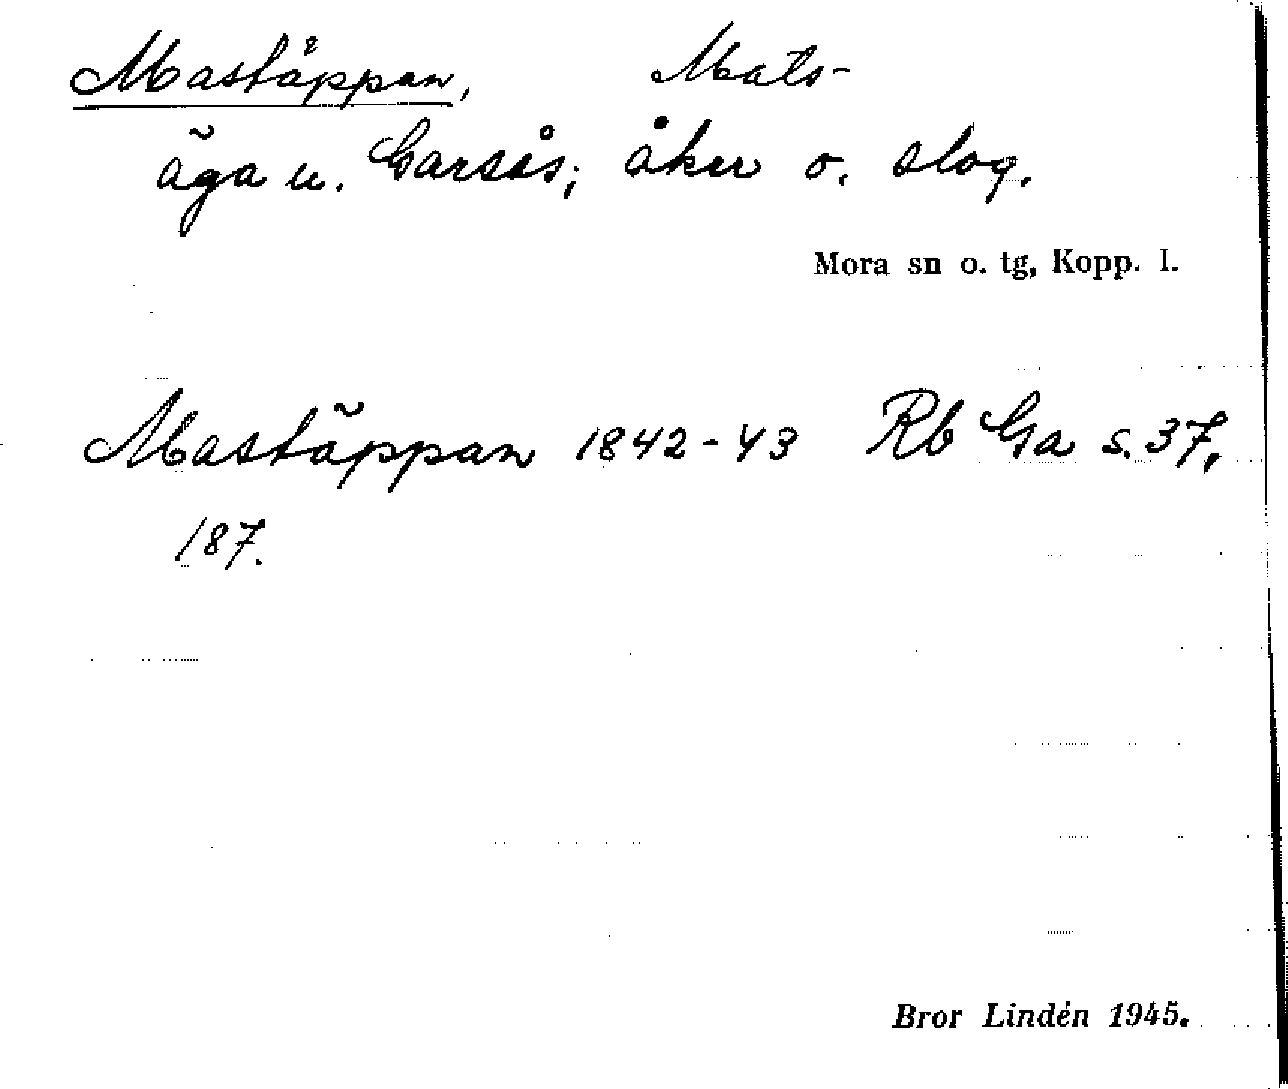 Mastäppan, Mats-
äga u. Garsås; åker o. slog.
Mora sn o. tg, Kopp. l.
Mastäppan 1842-43 Rb Ga s. 37,
187.
Bror Lindén 1945.